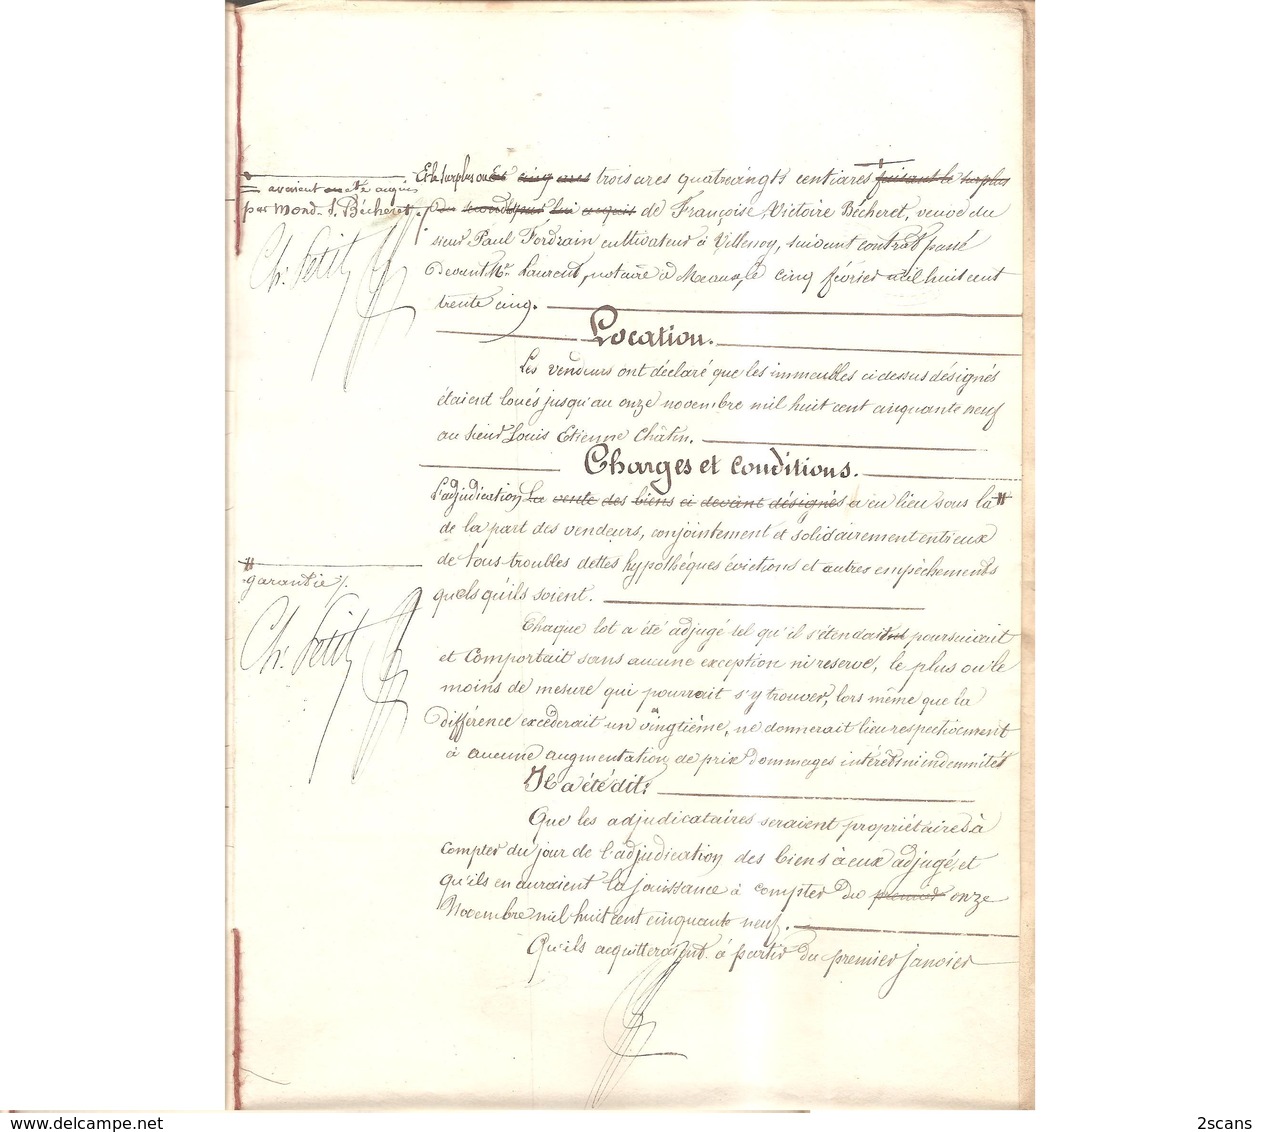 Et le surplus ou Et cinq ares trois ares quatrevingts centiares faisant le surplus
avaient été acquis
par Mond. S. Bécheret ./.
de Françoise Victoire Bécheret, veuve du
Ch. Petit
sieur Paul Fordrain cultivateur à Villenoy, suivant contrat passé
devant Me. Laurent, notaire à Meaux, le cinq février mil huit cent
trente cinq.
Location.
Les vendeurs ont déclaré que les immeubles ci dessus désignés
étaient loués jusqu'au onze novembre mil huit cent cinquante neuf
au sieur Louis Etienne Châtin.
Charges et conditions.
L'adjudication La vente des biens ci devant désignés a eu lieu sous la #
de la part des vendeurs, conjointement et solidairement entr'eux
de tous troubles dettes hypothèques évictions et autres empêchements
quels qu'ils soient.
#
garantie /.
Ch. Petit
Chaque lot a été adjugé tel qu'il s'étendait poursuivait
et comportait sans aucune exception ni reserve, le plus ou le
moins de mesure qui pourrait s'y trouver, lors même que la
différence excéderait un vingtième, ne donnerait lieu respectivement
à aucune augmentation de prix dommages intérêts ni indemnités
Il a été dit:
Que les adjudicataires seraient propriétaires à
compter du jour de l'adjudication des biens à eux adjugés, et
qu'ils en auraient la jouissance à compter du premier onze
Novembre mil huit cent cinquante neuf.
Qu'ils acquitteraient à partir du premier Janvier
2scans